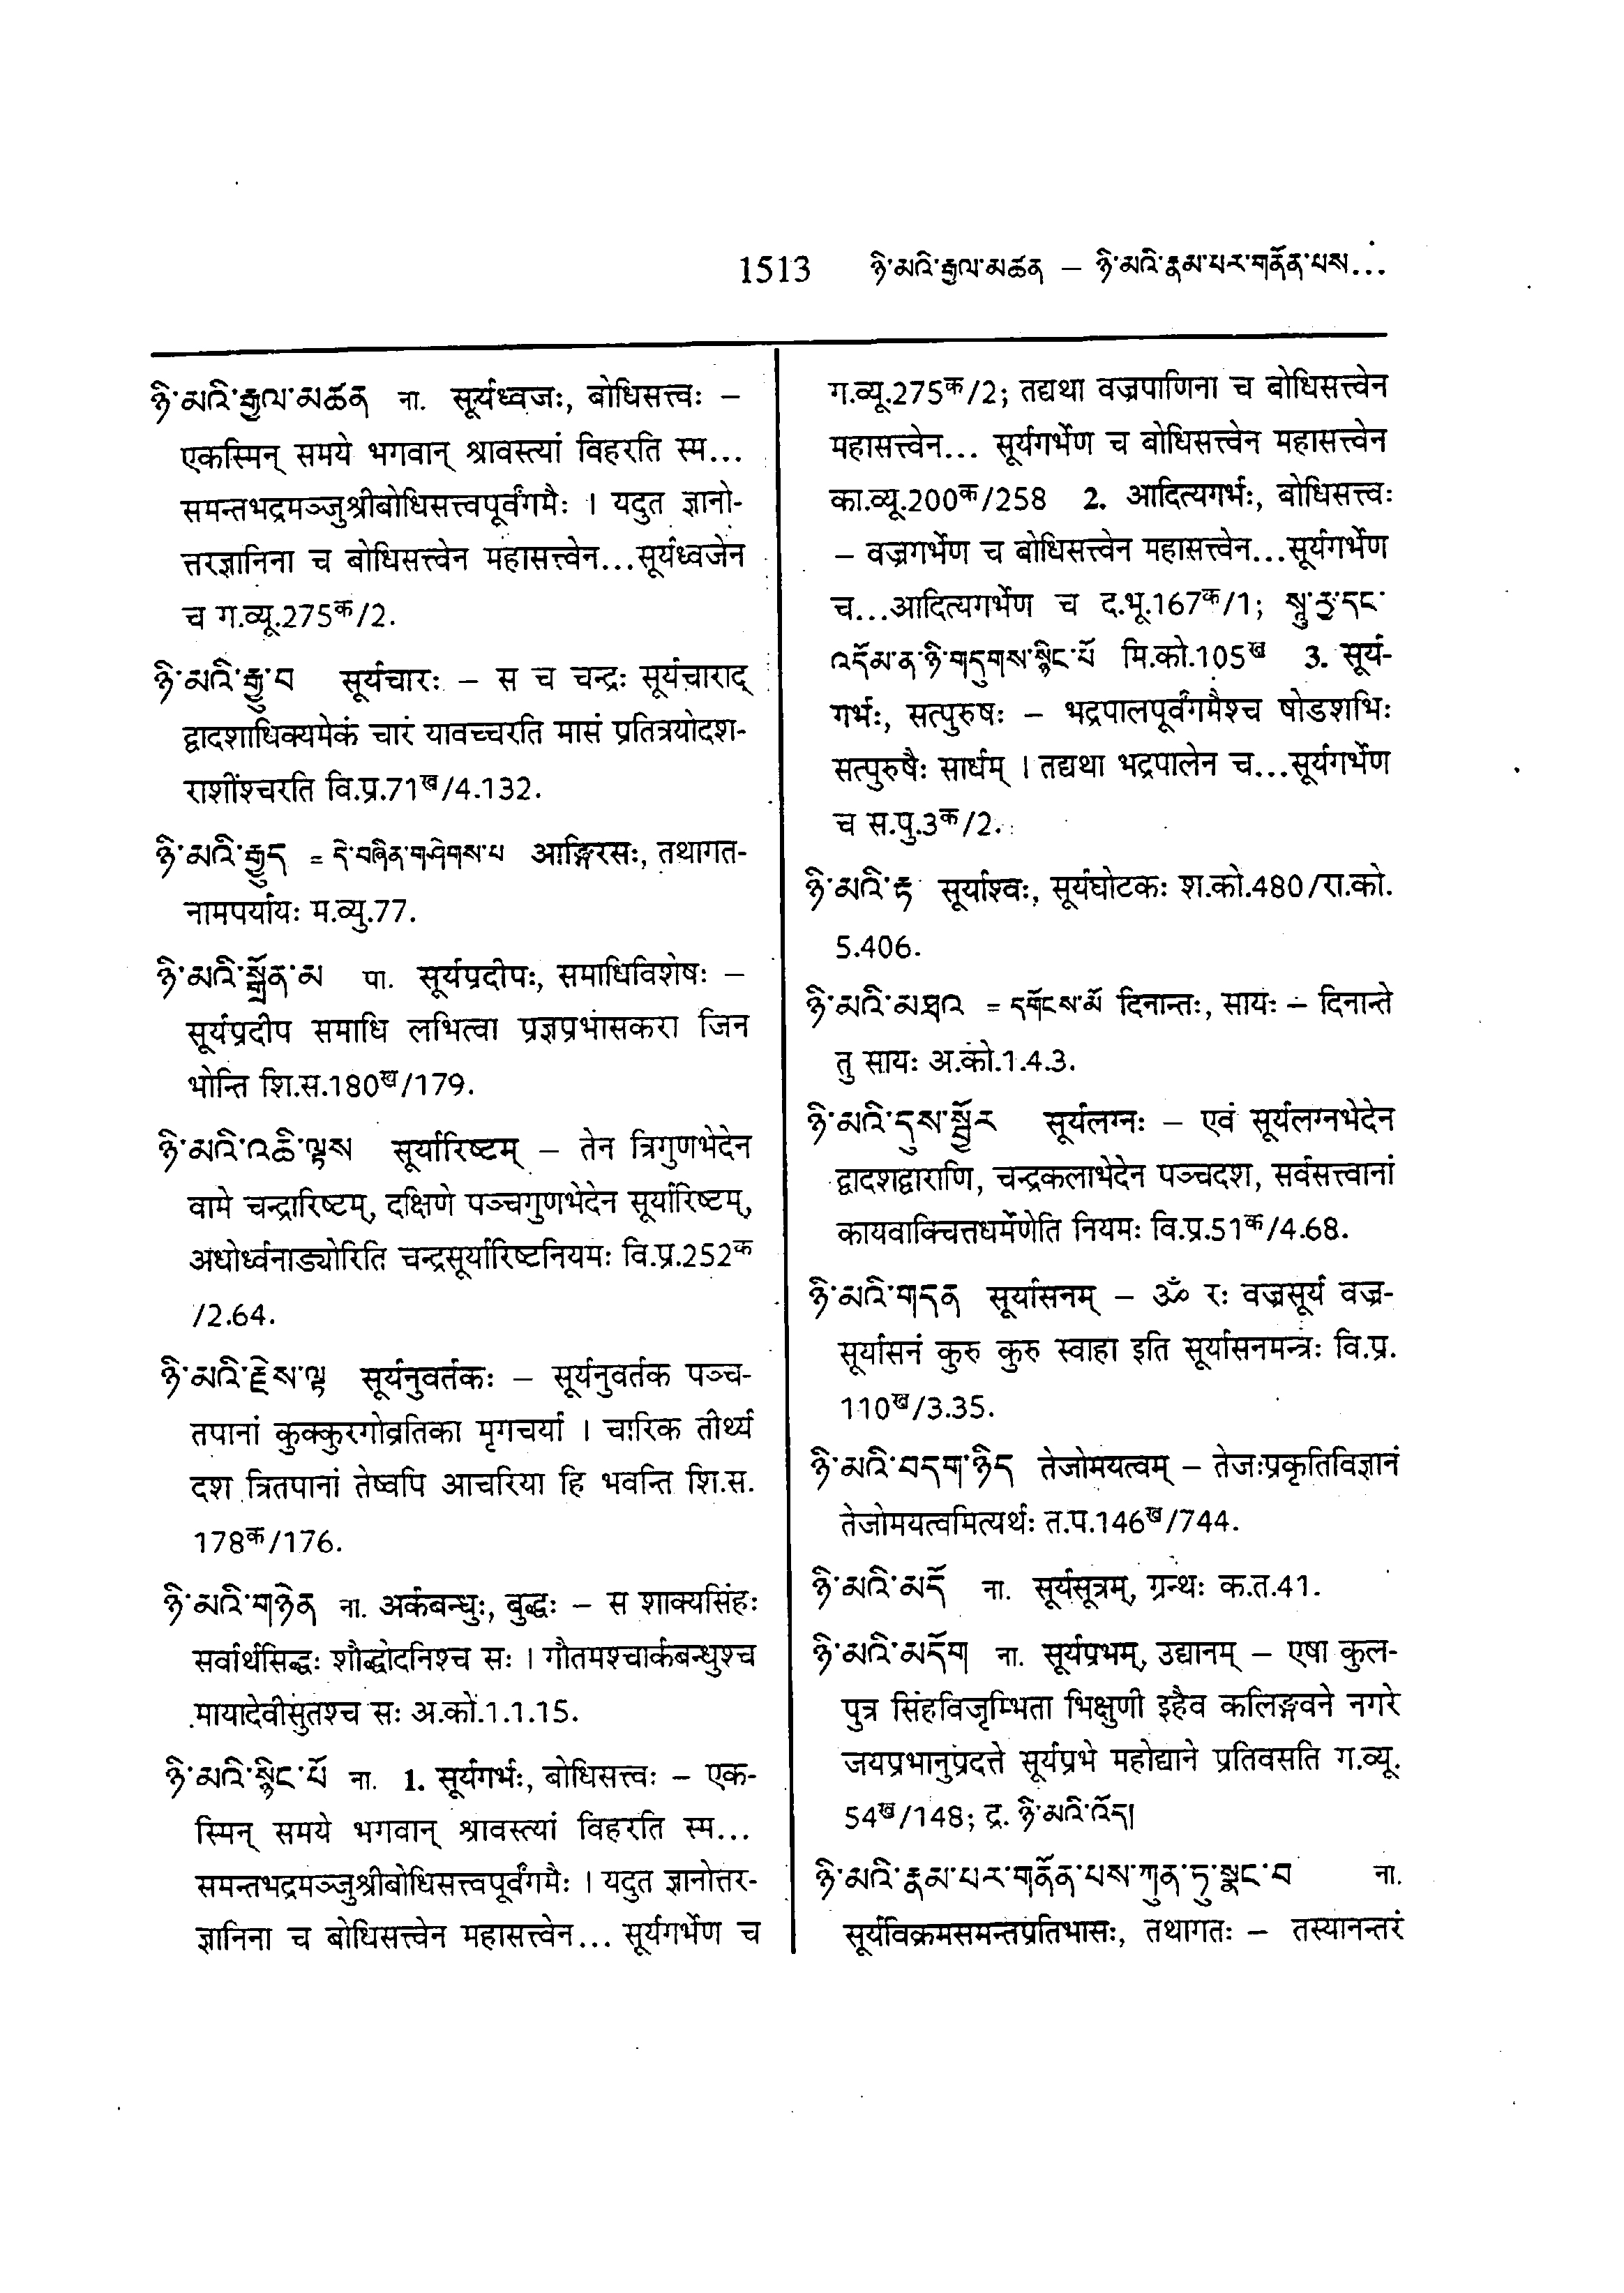 1513 ཉི་མའི་རྒྱལ་མཚན – ཉི་མའི་རྣམ་པར་གནོན་པས...
ཉི་མའི་རྒྱལ་མཚན ना. सूर्यध्वजः, बोधिसत्त्वः –
एकस्मिन् समये भगवान् श्रावस्त्यां विहरति स्म...
समन्तभद्रमञ्जुश्रीबोधिसत्त्वपूर्वंगमैः । यदुत ज्ञानो-
त्तरज्ञानिना च बोधिसत्त्वेन महासत्त्वेन...सूर्यध्वजेन
च ग.व्यू.275क/2.
ཉི་མའི་རྒྱུ་བ सूर्यचारः – स च चन्द्रः सूर्यचाराद्
द्वादशाधिक्यमेकं चारं यावच्चरति मासं प्रतित्रयोदश-
राशींश्चरति वि.प्र.71ख/4.132.
ཉི་མའི་རྒྱུད = དེ་བཞིན་གཤེགས་པ आङ्गिरसः, तथागत-
नामपर्यायः म.व्यु.77.
ཉི་མའི་སྒྲོན་མ पा. सूर्यप्रदीपः, समाधिविशेषः –
सूर्यप्रदीप समाधि लभित्वा प्रज्ञप्रभासकरा जिन
भोन्ति शि.स.180ख/179.
ཉི་མའི་འཆི་ལྟས सूर्यारिष्टम् – तेन त्रिगुणभेदेन
वामे चन्द्रारिष्टम्, दक्षिणे पञ्चगुणभेदेन सूर्यारिष्टम्,
अधोर्ध्वनाड्योरिति चन्द्रसूर्यारिष्टनियमः वि.प्र.252क
/2.64.
ཉི་མའི་རྗེས་ལྟ सूर्यनुवर्तकः – सूर्यनुवर्तक पञ्च-
तपानां कुक्कुरगोव्रतिका मृगचर्या । चारिक तीर्थ्य
दश त्रितपानां तेष्वपि आचरिया हि भवन्ति शि.स.
178क/176.
ཉི་མའི་གཉེན ना. अर्कबन्धुः, बुद्धः – स शाक्यसिंहः
सर्वार्थसिद्धः शौद्धोदनिश्च सः । गौतमश्चार्कबन्धुश्च
मायादेवीसुतश्च सः अ.को.1.1.15.
ཉི་མའི་སྙིང་པོ ना. 1. सूर्यगर्भः, बोधिसत्त्वः – एक-
स्मिन् समये भगवान् श्रावस्त्यां विहरति स्म...
समन्तभद्रमञ्जुश्रीबोधिसत्त्वपूर्वंगमैः । यदुत ज्ञानोत्तर-
ज्ञानिना च बोधिसत्त्वेन महासत्त्वेन... सूर्यगर्भेण च
ग.व्यू.275क/2; तद्यथा वज्रपाणिना च बोधिसत्त्वेन
महासत्त्वेन... सूर्यगर्भेण च बोधिसत्त्वेन महासत्त्वेन
का.व्यू.200क/258 2. आदित्यगर्भः, बोधिसत्त्वः
– वज्रगर्भेण च बोधिसत्त्वेन महासत्त्वेन...सूर्यगर्भेण
च...आदित्यगर्भेण च द.भू.167क/1; སཱུརྱ་དང་
འདོམ་ན་ཉི་གདུགས་སྙིང་པོ मि.को.105ख 3. सूर्य-
गर्भः, सत्पुरुषः – भद्रपालपूर्वंगमैश्च षोडशभिः
सत्पुरुषैः सार्धम् । तद्यथा भद्रपालेन च...सूर्यगर्भेण
च स.पु.3क/2.
ཉི་མའི་རྟ सूर्याश्वः, सूर्यघोटकः श.को.480/रा.को.
5.406.
ཉི་མའི་མཐའ = དགོངས་མོ दिनान्तः, सायः – दिनान्ते
तु सायः अ.को.1.4.3.
ཉི་མའི་དུས་སྦྱོར सूर्यलग्नः – एवं सूर्यलग्नभेदेन
द्वादशद्वाराणि, चन्द्रकलाभेदेन पञ्चदश, सर्वसत्त्वानां
कायवाक्चित्तधर्मेणेति नियमः वि.प्र.51क/4.68.
ཉི་མའི་གདན सूर्यासनम् – ॐ रः वज्रसूर्य वज्र-
सूर्यासनं कुरु कुरु स्वाहा इति सूर्यासनमन्त्रः वि.प्र.
110ख/3.35.
ཉི་མའི་བདག་ཉིད तेजोमयत्वम् – तेजःप्रकृतिविज्ञानं
तेजोमयत्वमित्यर्थः त.प.146ख/744.
ཉི་མའི་མདོ ना. सूर्यसूत्रम्, ग्रन्थः क.त.41.
ཉི་མའི་མདོག ना. सूर्यप्रभम्, उद्यानम् – एषा कुल-
पुत्र सिंहविजृम्भिता भिक्षुणी इहैव कलिङ्गवने नगरे
जयप्रभानुप्रदत्ते सूर्यप्रभे महोद्याने प्रतिवसति ग.व्यू.
54ख/148; द्र. ཉི་མའི་འོད།
ཉི་མའི་རྣམ་པར་གནོན་པས་ཀུན་ཏུ་སྣང་བ ना.
सूर्यविक्रमसमन्तप्रतिभासः, तथागतः – तस्यानन्तरं